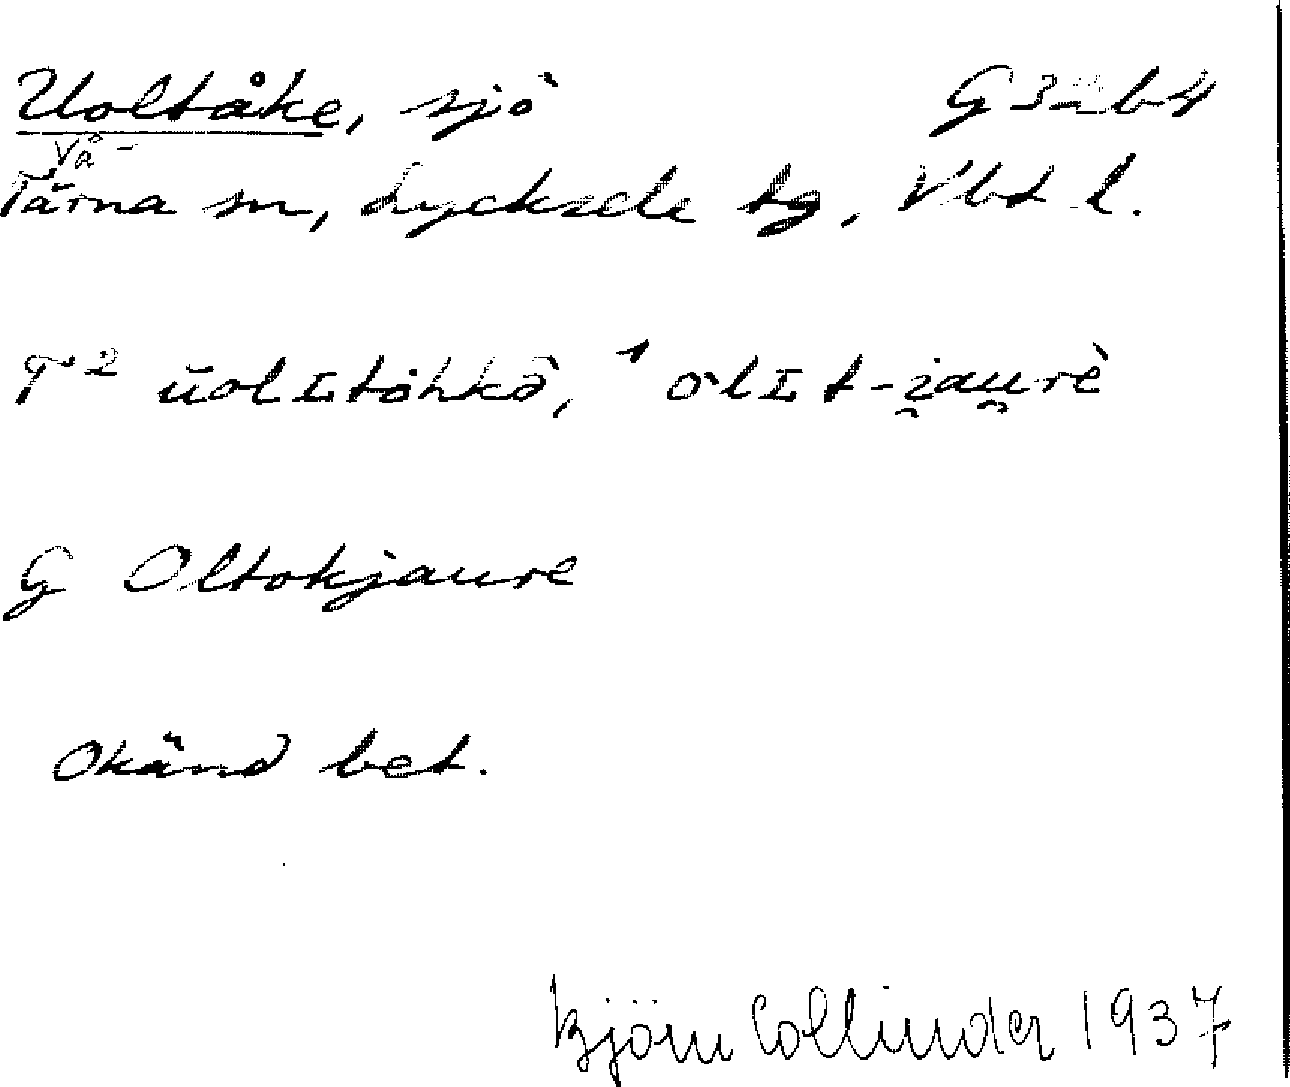 Uoltåke, sjö G 3 b 4
Vå-
Tärna sn, Lycksele tg, Vbt l.
T² ŭolɪtåhkō, ¹ olɪt-i̯au̯rè
G Oltokjaure
Okänd bet.
Björn Collinder 1937